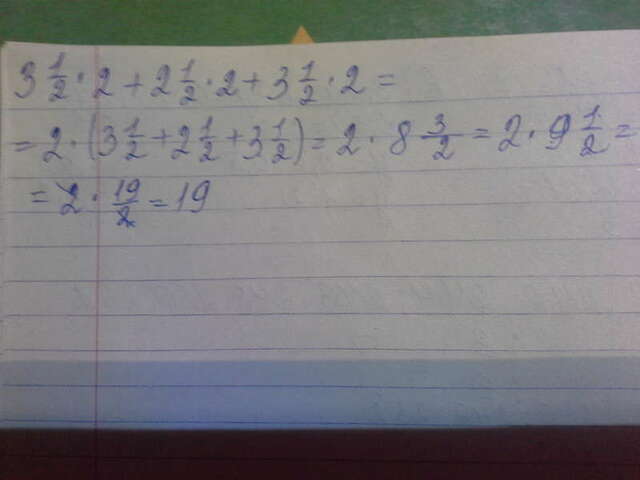 3 1/2 · 2 + 2 1/2 · 2 + 3 1/2 · 2 =
= 2 · (3 1/2 + 2 1/2 + 3 1/2) = 2 · 8 3/2 = 2 · 9 1/2 =
= 2 · 19/2 = 19